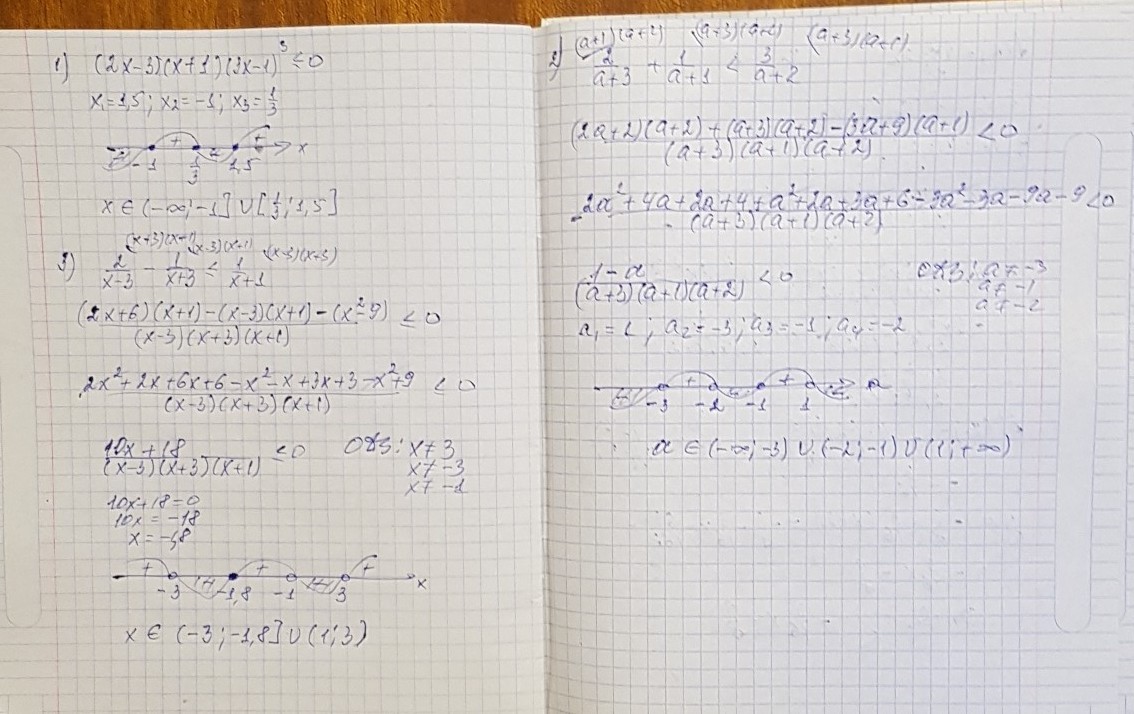 1) (2x-3)(x+1)(3x-1)³ ≤ 0
x₁=1,5; x₂=-1; x₃=1/3
- + - + x
-1 1/3 1,5
x ∈ (-∞;-1] ∪ [1/3;1,5]
3) 2/(x-3) (x+3)(x+1) - 1/(x+3) (x-3)(x+1) ≤ 1/(x+1) (x-3)(x+3)
((2x+6)(x+1)-(x-3)(x+1)-(x²-9))/((x-3)(x+3)(x+1)) ≤ 0
(2x²+2x+6x+6-x²-x+3x+3-x²+9)/((x-3)(x+3)(x+1)) ≤ 0
(10x+18)/((x-3)(x+3)(x+1)) ≤ 0 ОДЗ: x≠3
x≠-3
x≠-1
10x+18=0
10x=-18
x=-1,8
+ - + - + x
-3 -1,8 -1 3
x ∈ (-3;-1,8] ∪ (1;3)
2) 2/(a+3) (a+1)(a+2) + 1/(a+1) (a+3)(a+2) < 3/(a+2) (a+3)(a+1)
((2a+2)(a+2)+(a+3)(a+2)-(3a+9)(a+1))/((a+3)(a+1)(a+2)) < 0
(2a²+4a+2a+4+a²+2a+3a+6-3a²-3a-9a-9)/((a+3)(a+1)(a+2)) < 0
(1-a)/((a+3)(a+1)(a+2)) < 0 ОДЗ: a≠-3
a≠-1
a≠-2
a₁=1; a₂=-3; a₃=-1; a₄=-2
- + - + - a
-3 -2 -1 1
a ∈ (-∞;-3) ∪ (-2;-1) ∪ (1;+∞)